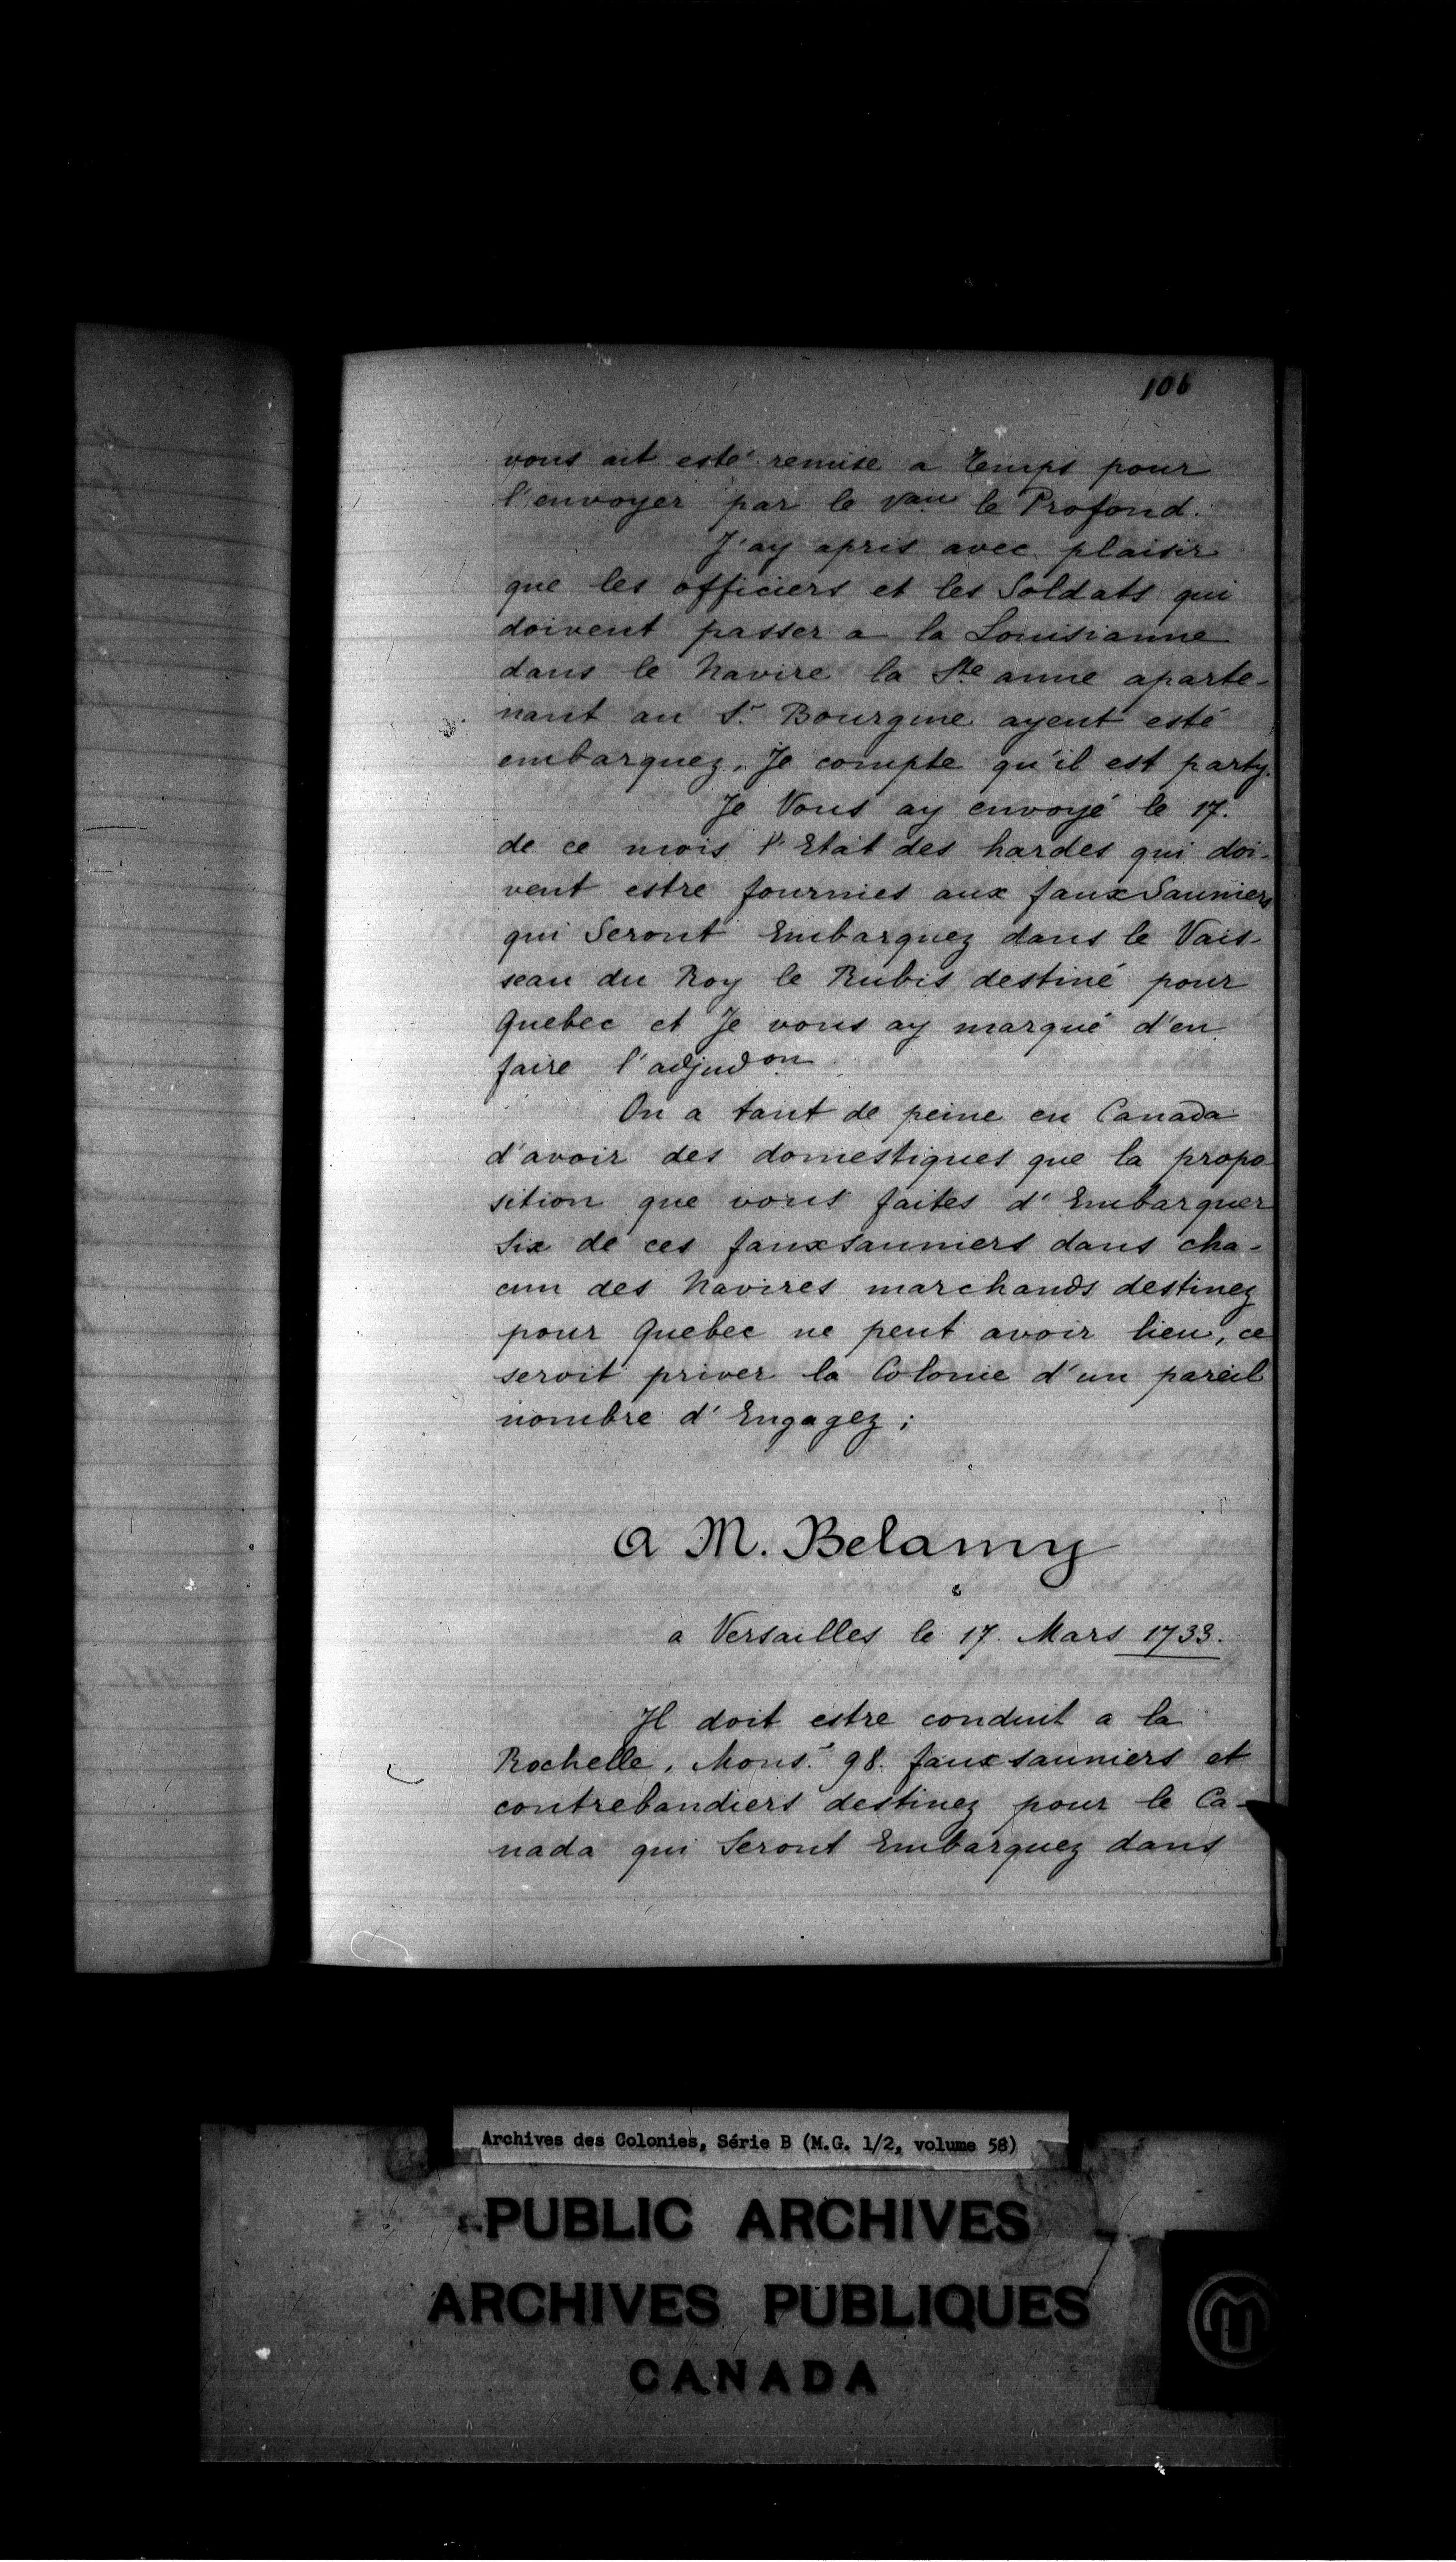 106
vous ait esté remise a temps pour
l'envoyer par le vau le Profond.
J'ay apris avec plaisir
que les officiers et les Soldats qui
doivent passer a la Louisianne
dans le Navire la Ste anne aparte-
nant au Sr. Bourgine ayent esté
embarquez, Je compte qu'il est party.
Je Vous ay envoyé le 17.
de ce mois l'Etat des hardes qui doi-
vent estre fournies aux faux Sauniers
qui Seront Embarquez dans le Vais-
seau du Roy le Rubis destiné pour
Quebec et Je vous ay marqué d'en
faire l'adjudon
On a tant de peine en Canada
d'avoir des domestiques que la propo-
sition que vous faites d'Embarquer
Six de ces fauxsauniers dans cha-
cun des Navires marchands destinez
pour Quebec ne peut avoir lieu, ce
seroit priver la Colonie d'un pareil
nombre d'Engagez;
a M. Belamy
a Versailles le 17. Mars 1733.
Il doit estre conduit a la
Rochelle, Monsr. 98. faux sauniers et
contrebandiers destinez pour le Ca-
nada qui Seront Embarquez dans
Archives des Colonies, Série B (M.G. 1/2, volume 58)
PUBLIC ARCHIVES
ARCHIVES PUBLIQUES
CANADA
M